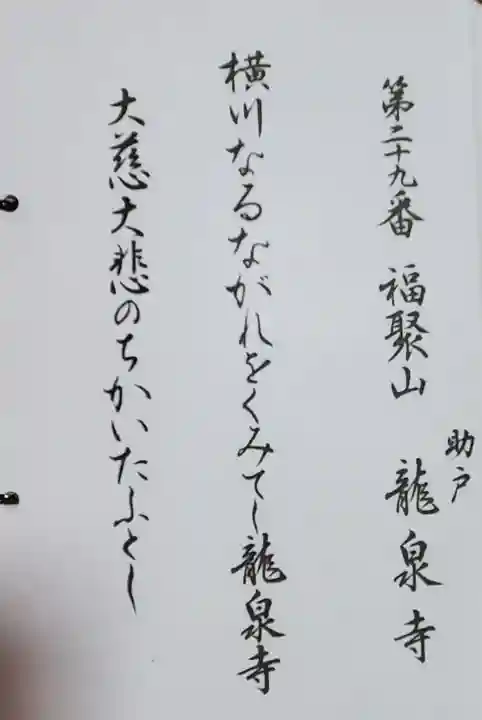 第二十九番 福聚山 龍泉寺
助戸
横川なるながれをくみてし龍泉寺
大慈大悲のちかいたふとし